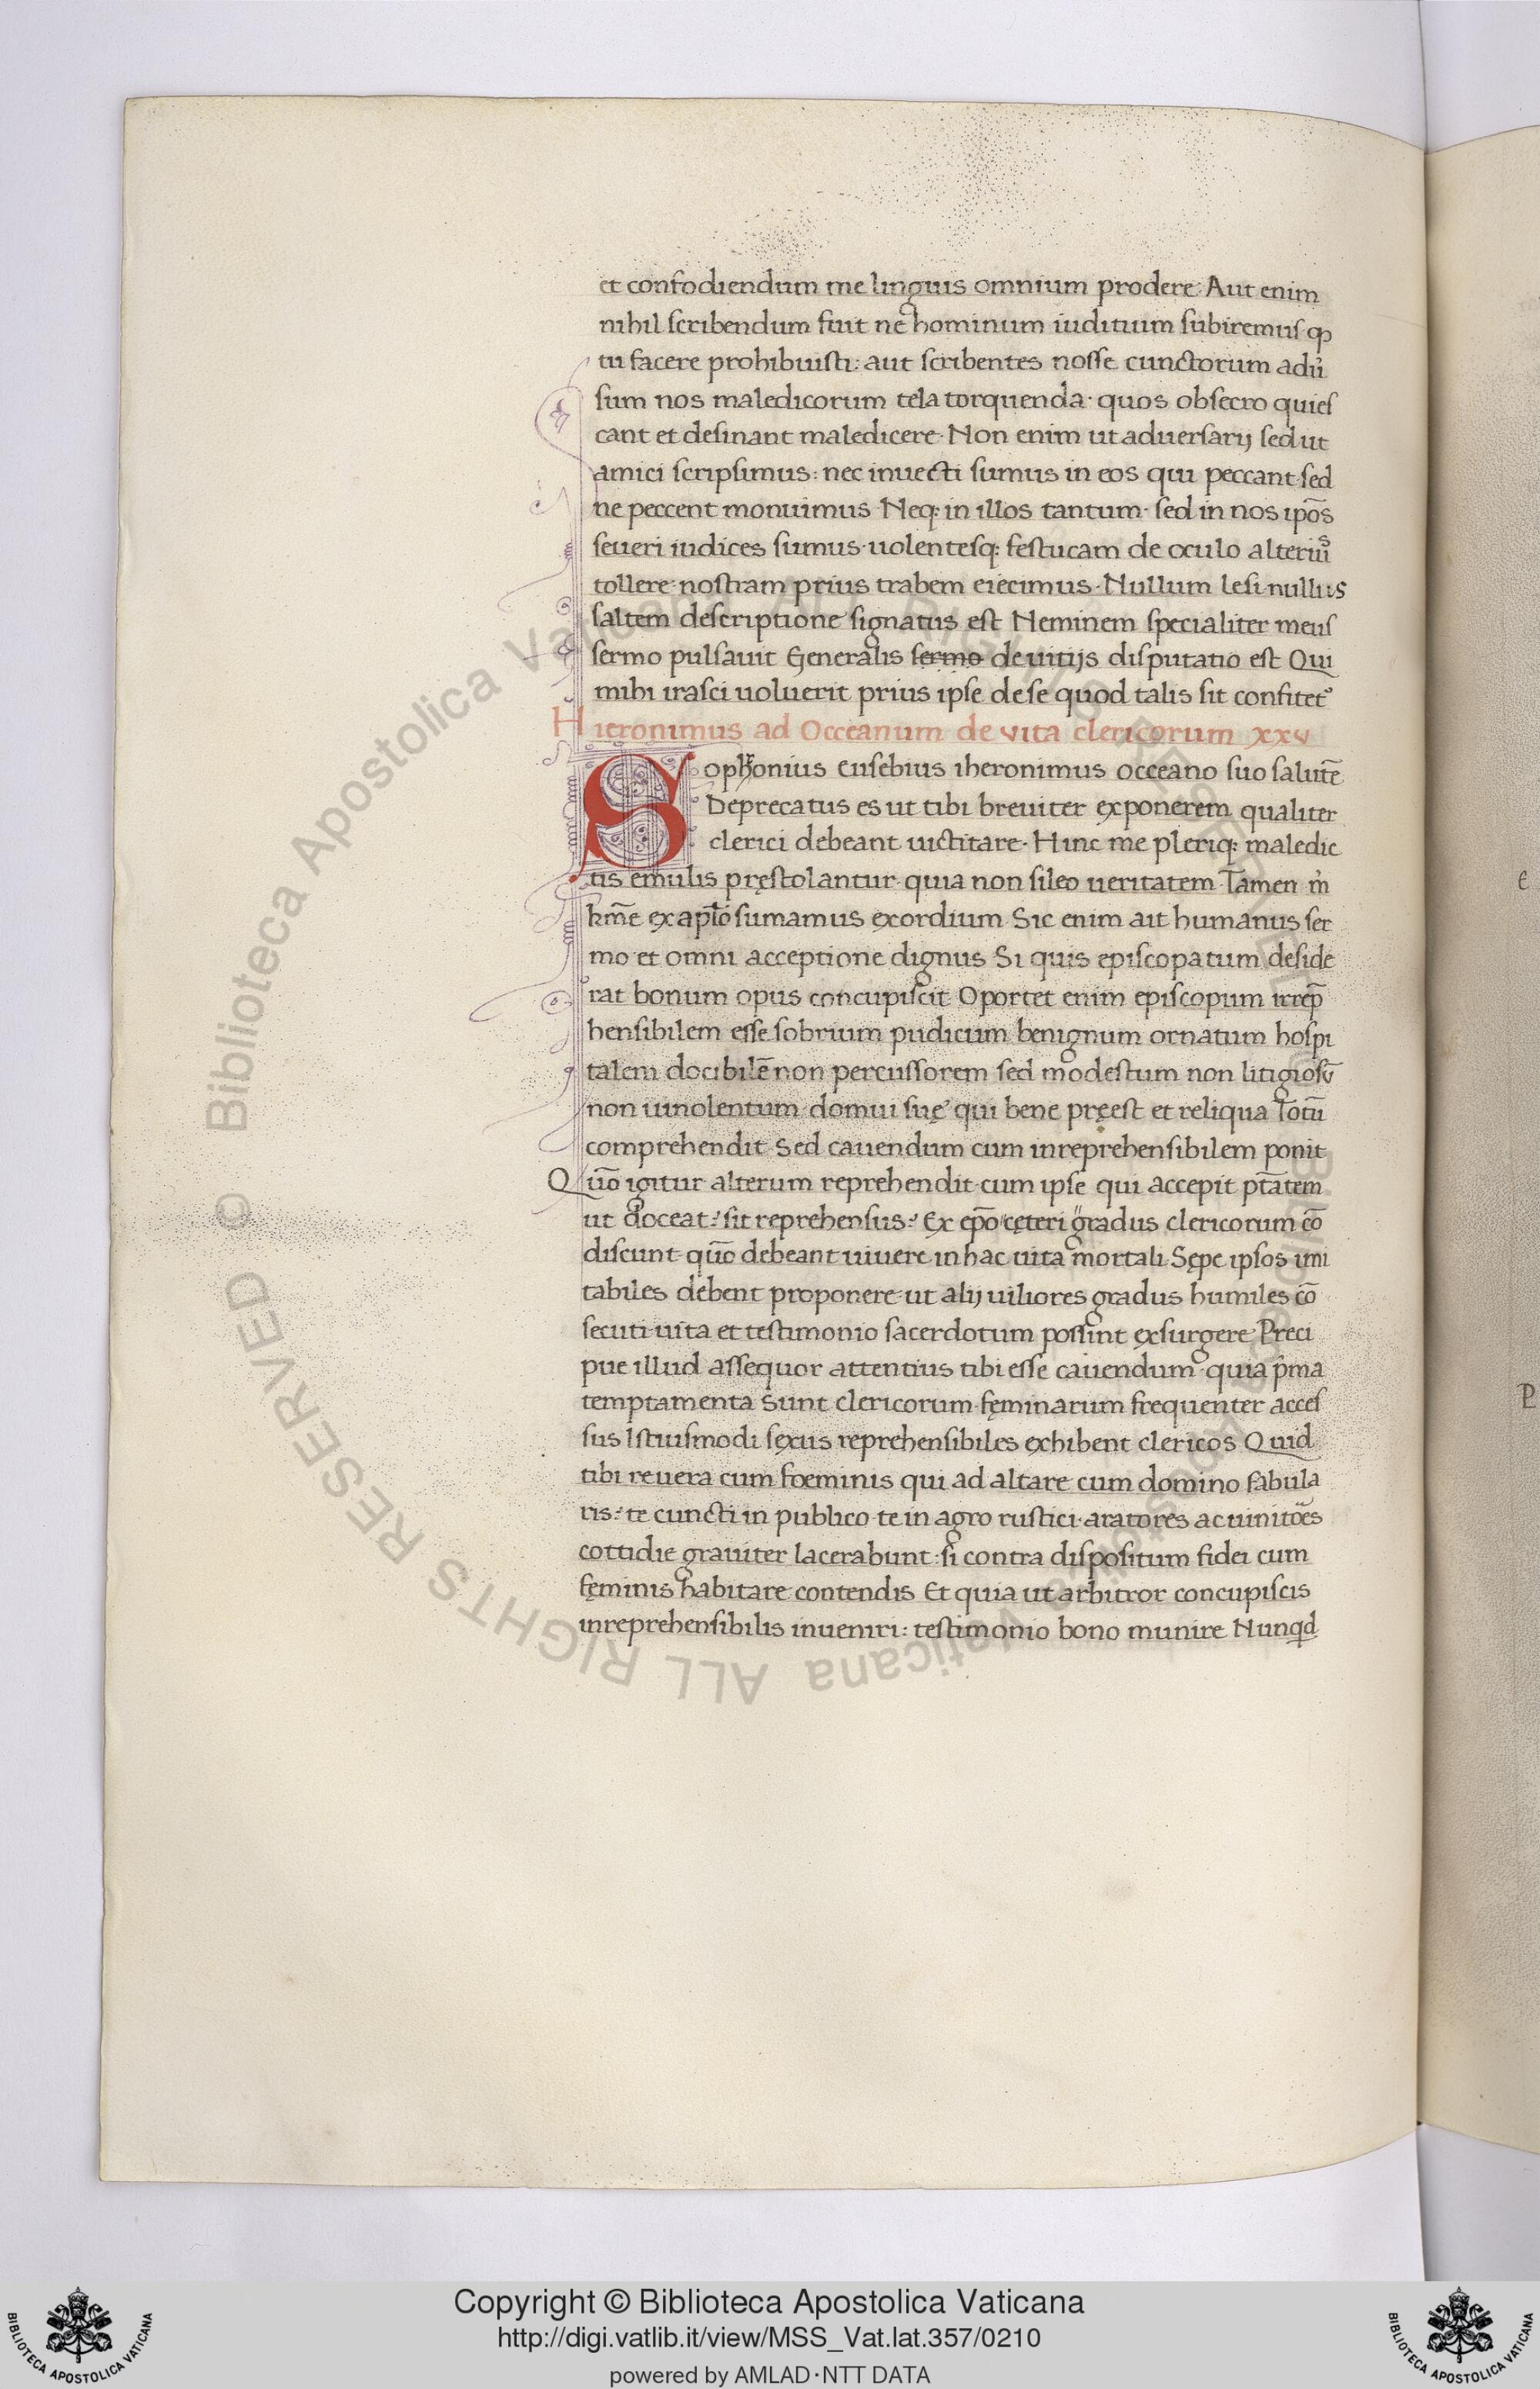 et confodiendum me linguis omnium prodere· Aut enim
nihil scribendum fuit ne hominum iuditium subiremus ꝙ
tu facere prohibuisti: aut scribentes nosse cunctorum adu̓
sum nos maledicorum tela torquenda· quos obsecro quies
cant et desinant maledicere· Non enim ut aduersarij sed ut
amici scripsimus: nec inuecti sumus in eos qui peccant· sed
ne peccent monuimus Neq: in illos tantum· sed in nos ip̄os
seueri iudices sumus· uolentesq: festucam de oculo alterius
tollere· nostram prius trabem eiecimus· Nullum lesi· nullius
saltem descriptione signatus est Neminem specialiter meus
sermo pulsauit Generalis sermo de uitijs disputatio est Qui
mihi irasci uoluerit prius ipse de se quod talis sit confitet᷒
Hieronimus ad Occeanum de vita clericorum xxv
Sophronius eusebius iheronimus occeano suo salutē
Deprecatus es ut tibi breuiter exponerem qualiter
clerici debeant uictitare· Hinc me pleriq: maledic
tis emulis pręstolantur· quia non sileo ueritatem Tamen m̓
km̄e ex ap̄lo sumamus exordium Sic enim ait humanus ser
mo et omni acceptione dignus Si quis episcopatum deside
rat bonum opus concupiscit Oportet enim episcopum irrep̄
hensibilem esse sobrium pudicum benignum ornatum hospi
talem docibilē non percussorem sed modestum non litigiosū
non uinolentum· domui suę qui bene pręest et reliqua Totū
comprehendit· Sed cauendum cum inreprehensibilem ponit
Quō igitur alterum reprehendit· cum ipse qui accepit ptātem
ut doceat: sit reprehensus: Ex ep̄o cęteri gradus clericorum cō
discunt· quō debeant uiuere in hac uita mortali· Sępe ipsos imi
tabiles debent proponere· ut alij uiliores gradus humiles cō
secuti uita et testimonio sacerdotum possint exsurgere Preci
pue illud assequor attentius tibi esse cauendum· quia p̄ma
temptamenta sunt clericorum· fęminarum frequenter acces
sus Istiusmodi sexus reprehensibiles exhibent clericos Quid
tibi reuera cum foeminis qui ad altare cum domino fabula
ris: te cuncti in publico· te in agro rustici· aratores ac uinitōes
cottidie grauiter lacerabunt: si contra dispositum fidei cum
fęminis habitare contendis Et quia ut arbitror concupiscis
inreprehensibilis inueniri: testimonio bono munire Nunqd
© Biblioteca Apostolica Vaticana ALL RIGHTS RESERVED
Copyright © Biblioteca Apostolica Vaticana
http://digi.vatlib.it/view/MSS_Vat.lat.357/0210
powered by AMLAD·NTT DATA
BIBLIOTECA APOSTOLICA VATICANA
BIBLIOTECA APOSTOLICA VATICANA